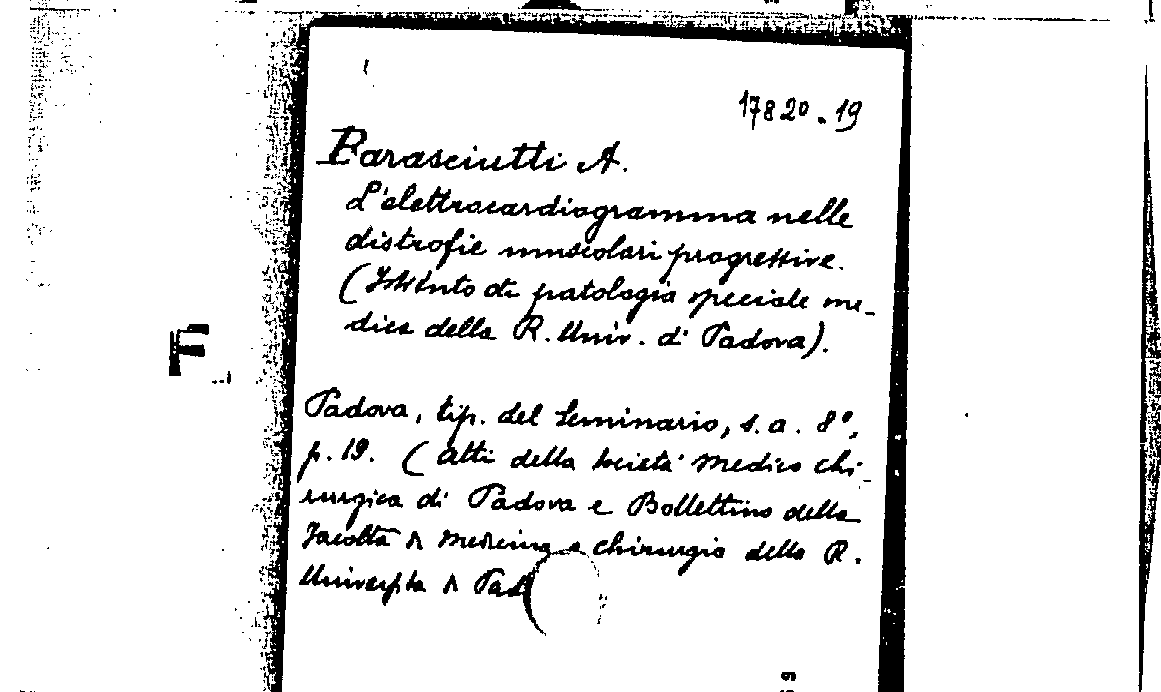 17820.19
Barasciutti A.
L'elettrocardiogramma nelle
distrofie muscolari progressive.
(Istituto di patologia speciale me-
dica della R. Univ. di Padova).
Padova, tip. del Seminario, s. a. 8°,
p. 19. (Atti della Società medico chi-
rurgica di Padova e Bollettino della
Facoltà di Medicina e chirurgia della R.
Università di Pad
F